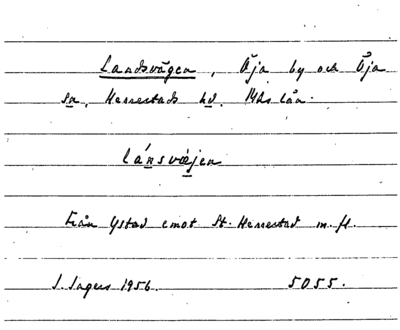 Landsvägen, Öja by och Öja
sn, Herrestads hd. Mhs län.
lánsvæjen
Från Ystad emot St. Herrestad m. fl.
I. Ingers 1956. 5055.